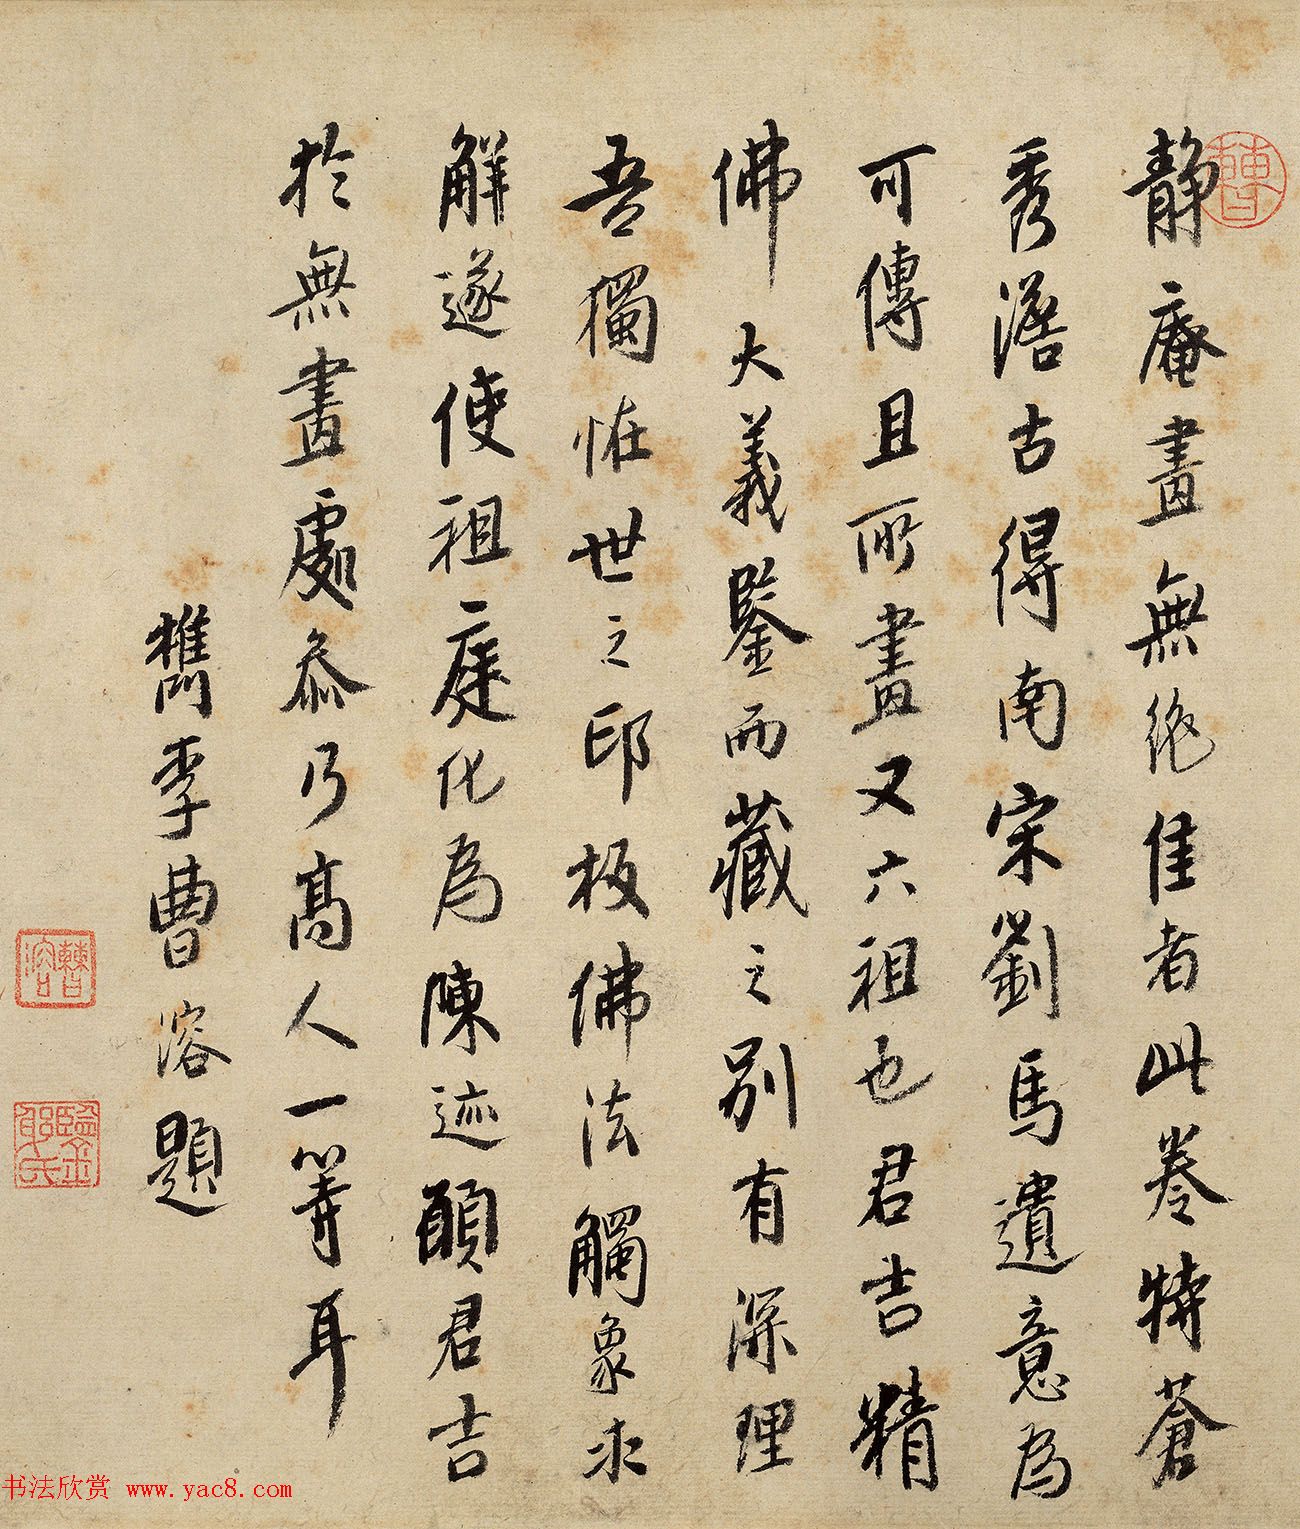 靜庵畫無絕佳者此卷特蒼
秀澹古得南宋劉馬遺意為
可傳且所畫又六祖也君吉精
佛大義鑒而藏之別有深理
吾獨怪世之印板佛法觸象求
解遂使祖庭化為陳迹願君吉
於無畫處參乃高人一等耳
檇李曹溶題
曹
曹溶
书法欣赏 www.yac8.com